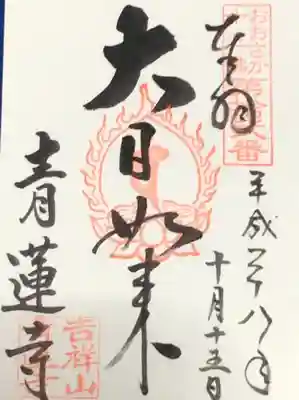 おおさか
奉拝
平成二十八年
十月十五日
大日如来
青蓮寺
吉祥山